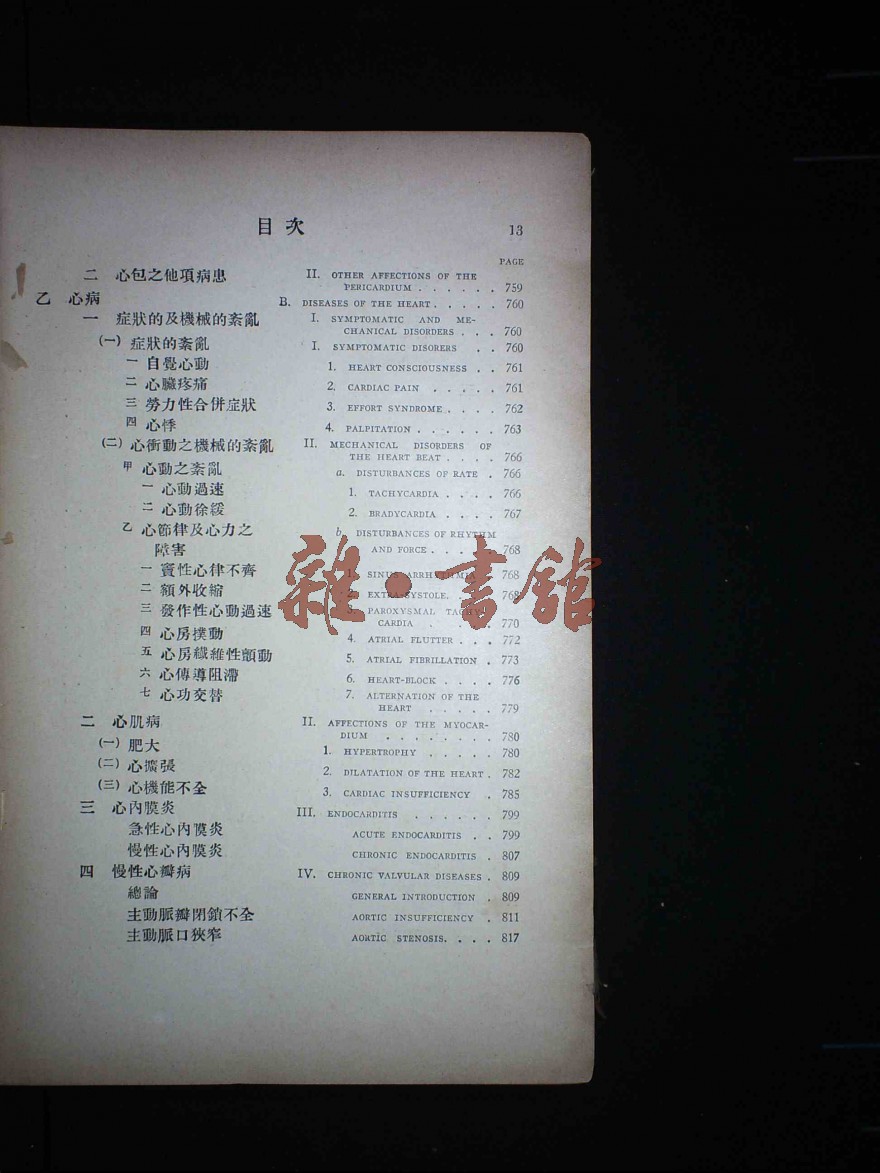 目次 13
PAGE
二 心包之他項病患 II. OTHER AFFECTIONS OF THE
PERICARDIUM . . . . . . 759
乙 心病 B. DISEASES OF THE HEART . . . . . 760
一 症狀的及機械的紊亂 I. SYMPTOMATIC AND ME-
CHANICAL DISORDERS . . . 760
(一) 症狀的紊亂 I. SYMPTOMATIC DISORERS . . 760
一 自覺心動 1. HEART CONSCIOUSNESS . . 761
二 心臟疼痛 2. CARDIAC PAIN . . . . . 761
三 勞力性合併症狀 3. EFFORT SYNDROME . . . . 762
四 心悸 4. PALPITATION . . . . . . 763
(二) 心衝動之機械的紊亂 II. MECHANICAL DISORDERS OF
THE HEART BEAT . . . . 766
甲 心動之紊亂 a. DISTURBANCES OF RATE . 766
一 心動過速 1. TACHYCARDIA . . . . 766
二 心動徐緩 2. BRADYCARDIA . . . . 767
乙 心節律及心力之 b. DISTURBANCES OF RHYTHM
障害 AND FORCE . . . . . 768
一 竇性心律不齊 1. SINUS ARRHYTHMIA . 768
二 額外收縮 2. EXTRA-SYSTOLE. . . . 768
三 發作性心動過速 3. PAROXYSMAL TACHY-
CARDIA . . . . . 770
四 心房撲動 4. ATRIAL FLUTTER . . . 772
五 心房纖維性顫動 5. ATRIAL FIBRILLATION . 773
六 心傳導阻滯 6. HEART-BLOCK . . . . 776
七 心功交替 7. ALTERNATION OF THE
HEART . . . . . 779
二 心肌病 II. AFFECTIONS OF THE MYOCAR-
DIUM . . . . . . . 780
(一) 肥大 1. HYPERTROPHY . . . . . 780
(二) 心擴張 2. DILATATION OF THE HEART . 782
(三) 心機能不全 3. CARDIAC INSUFFICIENCY . 785
三 心內膜炎 III. ENDOCARDITIS . . . . . . 799
急性心內膜炎 ACUTE ENDOCARDITIS . . 799
慢性心內膜炎 CHRONIC ENDOCARDITIS . 807
四 慢性心瓣病 IV. CHRONIC VALVULAR DISEASES . 809
總論 GENERAL INTRODUCTION . 809
主動脈瓣閉鎖不全 AORTIC INSUFFICIENCY . 811
主動脈口狹窄 AORTIC STENOSIS. . . . 817
雜·書館